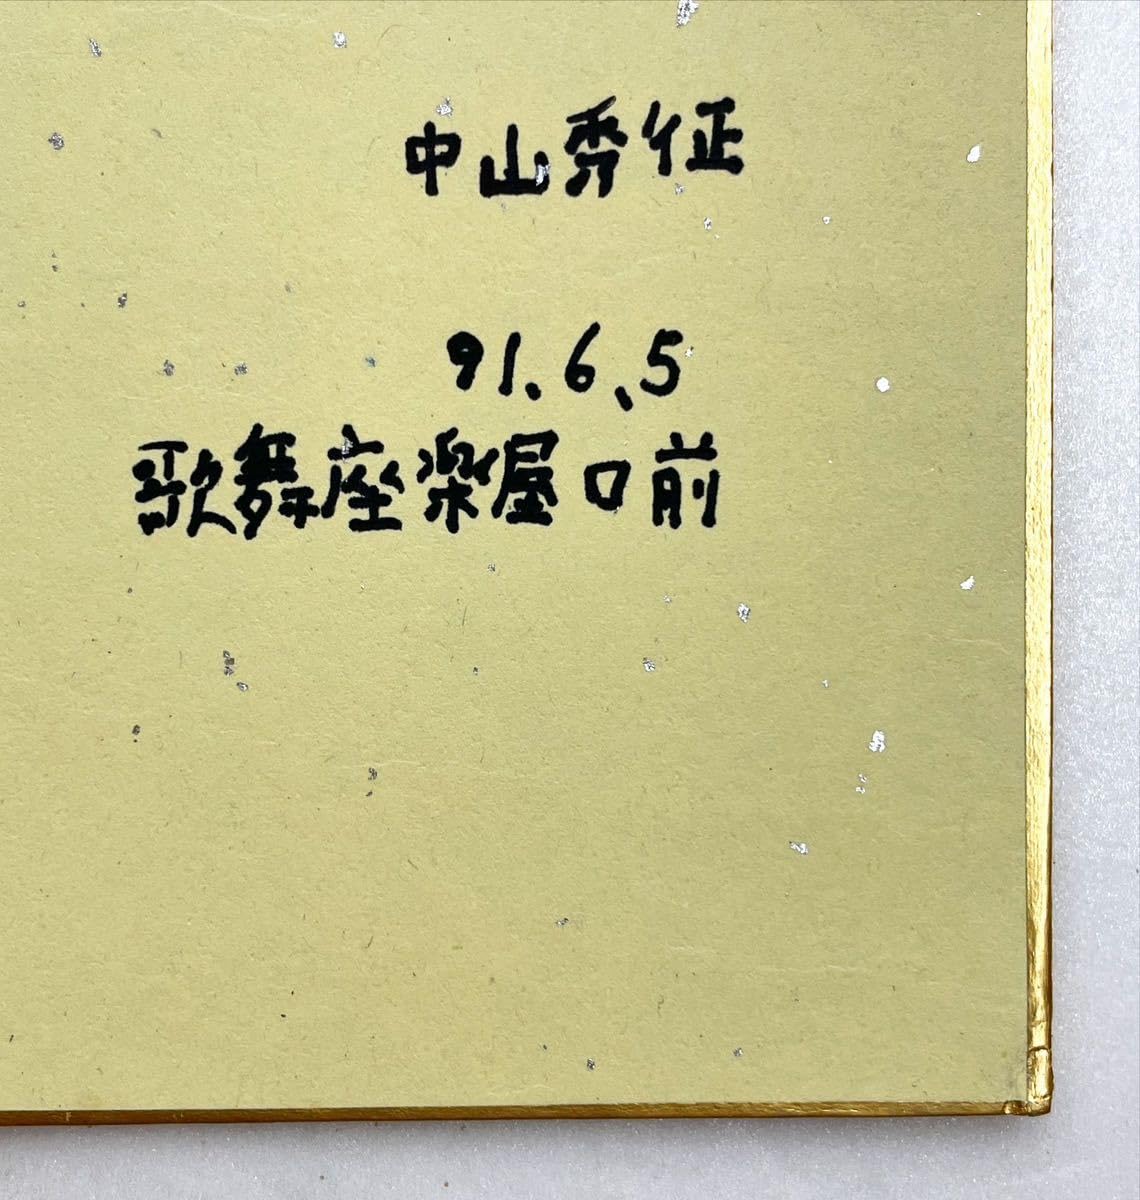 中山秀征
91.6.5
歌舞座楽屋口前